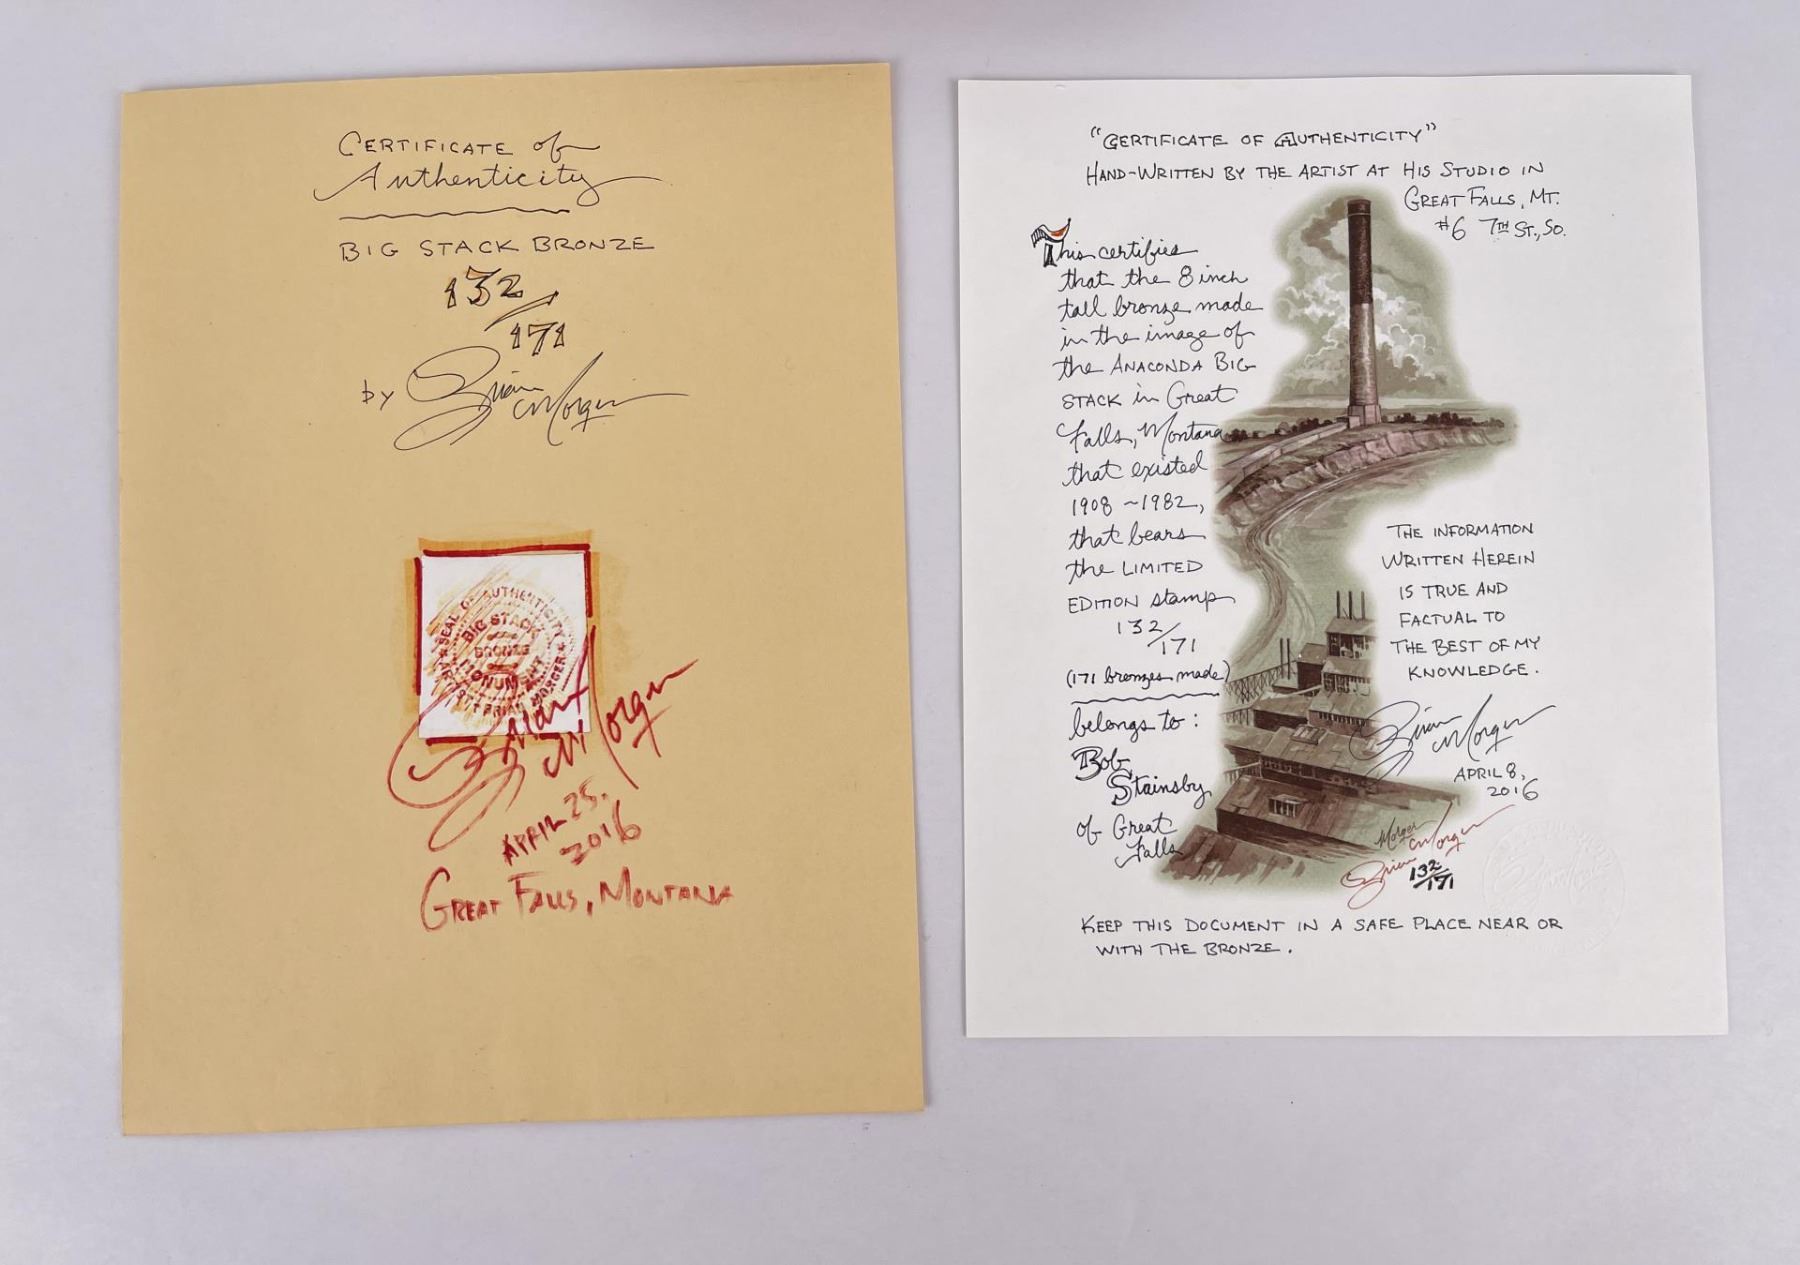 CERTIFICATE of
Authenticity
BIG STACK BRONZE
132/
171
by Brian Morger
SEAL OF AUTHENTICITY
BIG STACK
BRONZE
ARTIST BRIAN MORGER
Brian Morger
APRIL 25,
2016
GREAT FALLS, MONTANA
"CERTIFICATE OF AUTHENTICITY"
HAND-WRITTEN BY THE ARTIST AT HIS STUDIO IN
GREAT FALLS, MT.
#6 7TH ST., SO.
This certifies
that the 8 inch
tall bronze made
in the image of
the ANACONDA BIG
STACK in Great
Falls, Montana
that existed
1908 ~ 1982,
that bears
the LIMITED
EDITION stamp
132/
171
(171 bronzes made)
belongs to:
Bob
Stainsby
of Great
Falls
THE INFORMATION
WRITTEN HEREIN
IS TRUE AND
FACTUAL TO
THE BEST OF MY
KNOWLEDGE.
Brian Morger
APRIL 8,
2016
Morger
Brian Morger
132/
171
KEEP THIS DOCUMENT IN A SAFE PLACE NEAR OR
WITH THE BRONZE.